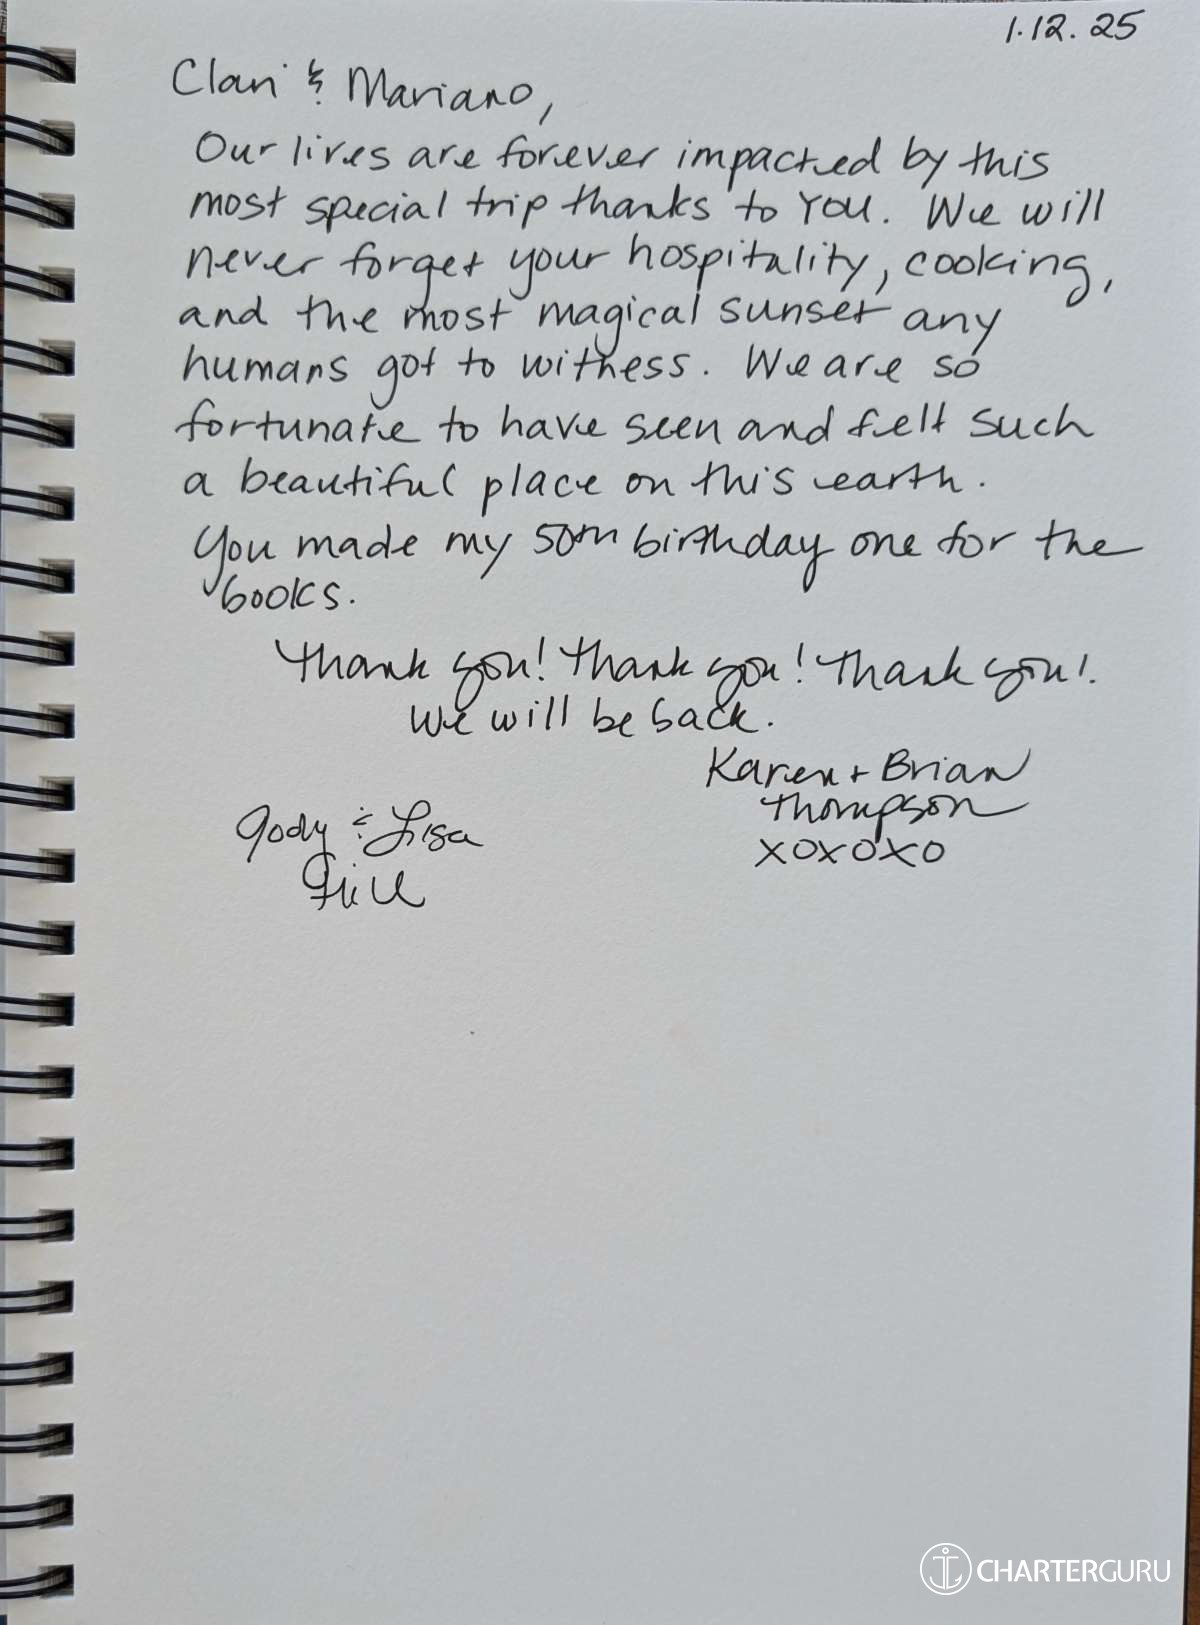 1.12.25
Clari & Mariano,
Our lives are forever impacted by this
most special trip thanks to YOU. We will
never forget your hospitality, cooking,
and the most magical sunset any
humans got to witness. We are so
fortunate to have seen and felt such
a beautiful place on this earth.
You made my 50th birthday one for the
books.
Thank you! Thank you! Thank you!
We will be back.
Karen + Brian
Thompson
XOXOXO
Jody & Lisa
CHARTERGURU